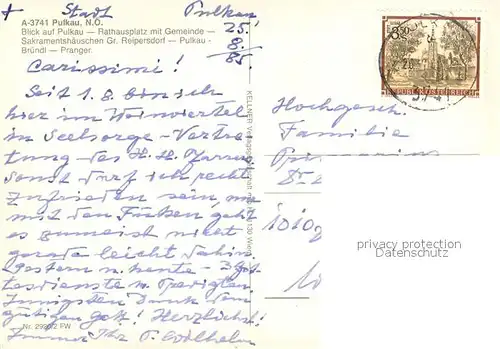 + Stadt Pulkau,
25.
8.
85
A-3741 Pulkau, N.Ö.
Blick auf Pulkau — Rathausplatz mit Gemeinde —
Sakramentshäuschen Gr. Reipersdorf — Pulkau -
Bründl — Pranger.
Carissimi!
Seit 1.8. bin ich
hier im Weinviertel
in Seelsorge-Vertre-
tung des H. H. Pfarrers
Sonst darf ich recht
zufrieden sein, nur
mit den Füßen geht
es zumeist nicht
gerade leicht dahin.
Gestern u. heute - 3 Got-
tesdienste m. Predigten
Innigsten Dank dem
gütigen Gott! Herzlichst!
Immer Ihr P. Wilhelm
Nr. 2930/2 FW
8.50
REPUBLIK ÖSTERREICH
Hochgesch.
Familie
Primarius
1010
privacy protection
Datenschutz